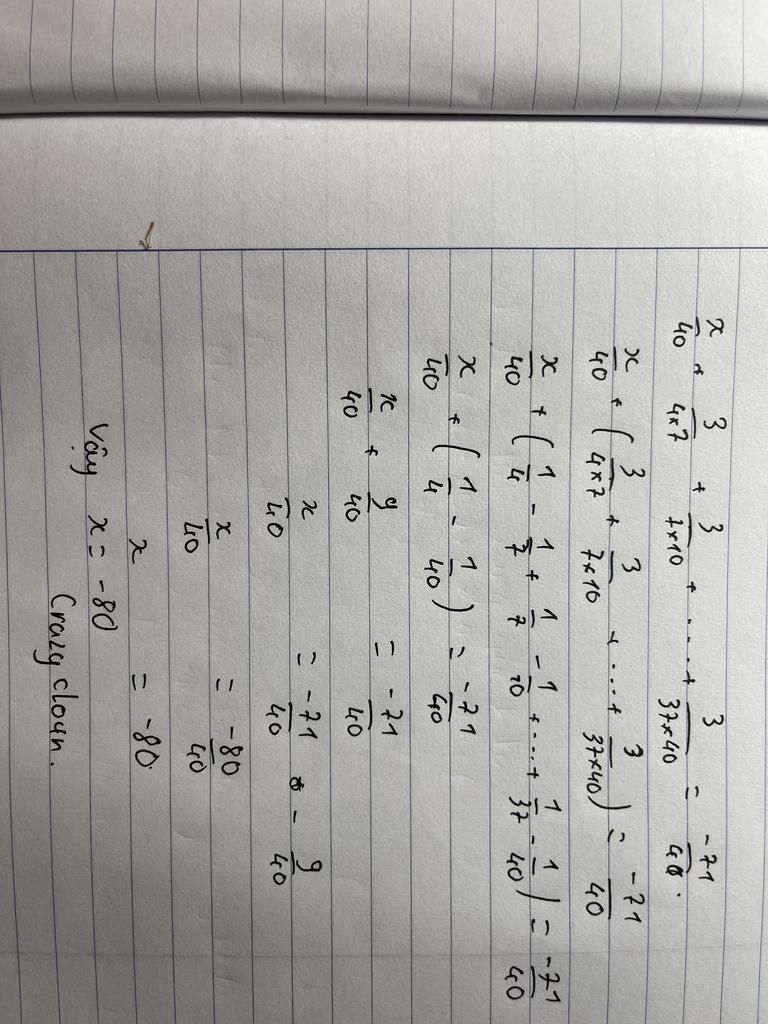 x/40 + 3/4×7 + 3/7×10 + .....+ 3/37×40 = -71/40.
x/40 + (3/4×7 + 3/7×10 + ....+ 3/37×40) = -71/40
x/40 + (1/4 - 1/7 + 1/7 - 1/10 + ...+ 1/37 - 1/40) = -71/40
x/40 + (1/4 - 1/40) = -71/40
x/40 + 9/40 = -71/40
x/40 = -71/40 - 9/40
x/40 = -80/40
x = -80.
Vậy x = -80
Crazy cloun.